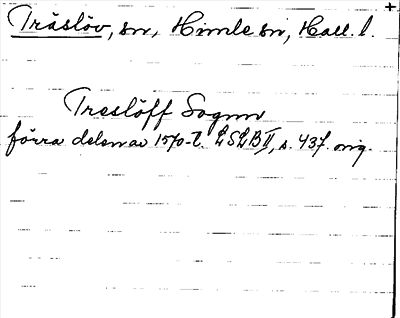 Träslöv, sn, Himle hd, Hall. l.
Treslöff Sognn
förra delen av 1570-t. LSLB II, s. 437. orig.